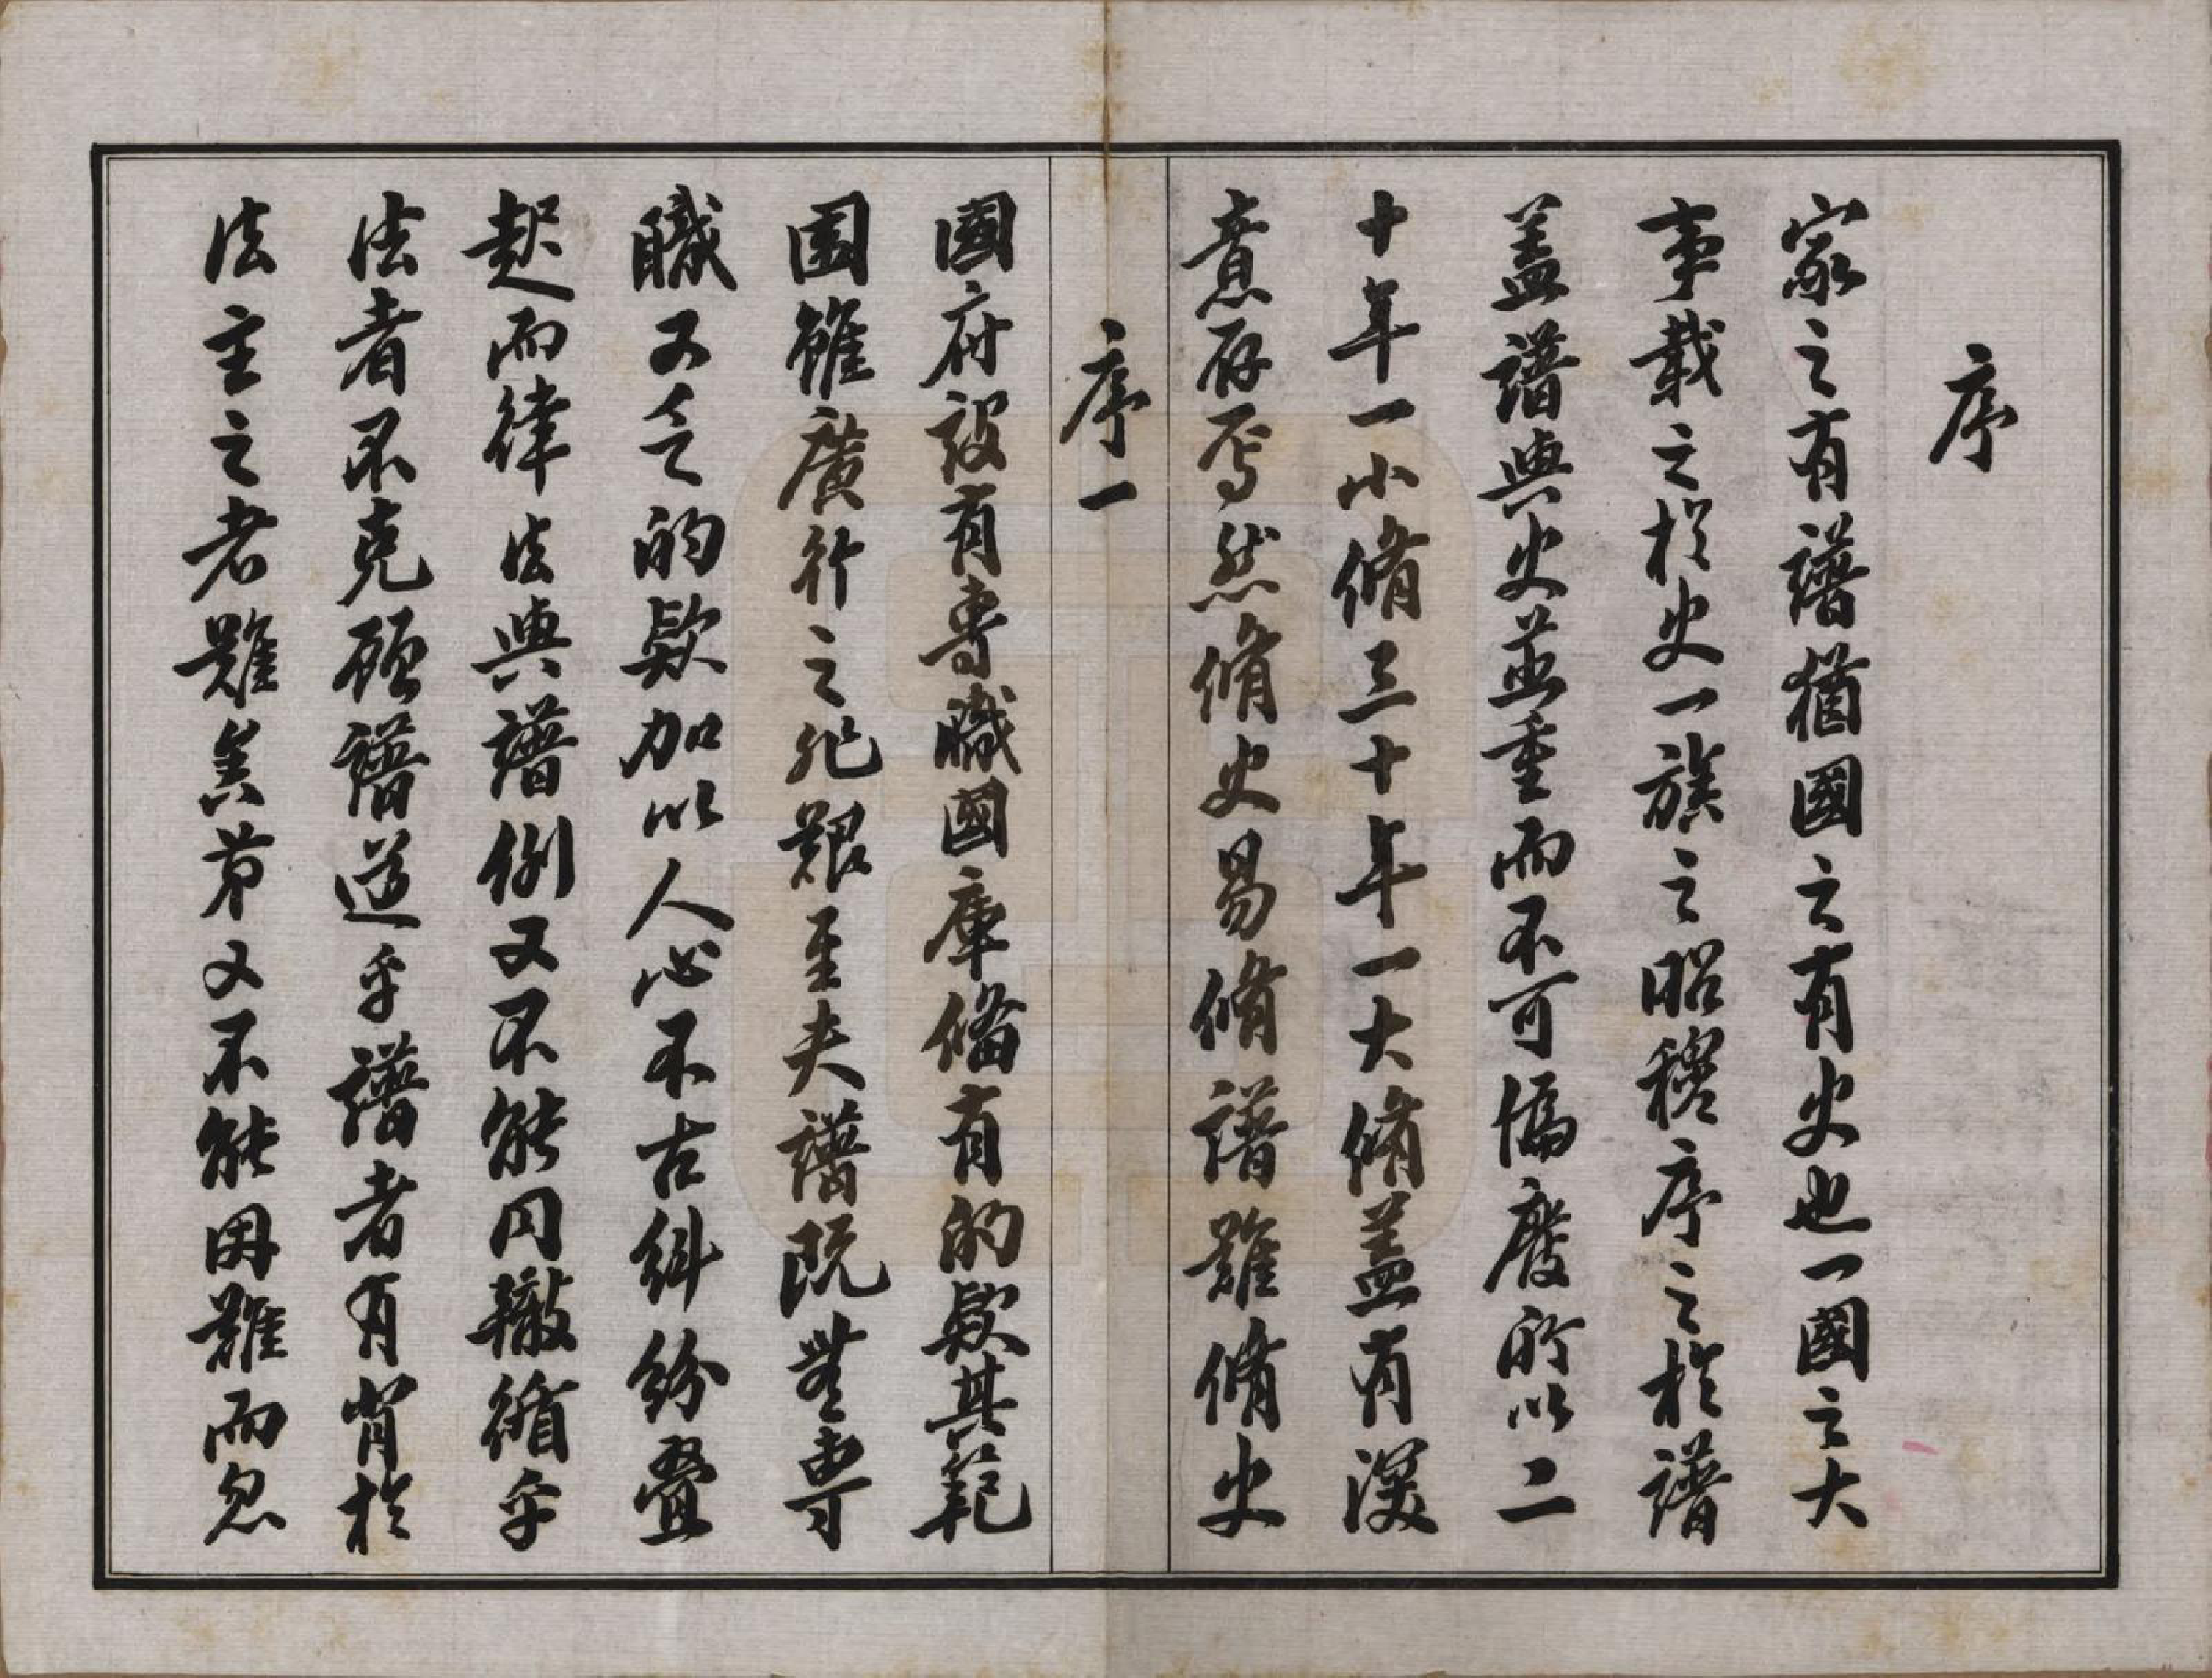 序
家之有譜猶國之有史也一國之大
事載之於史一族之昭穆序之於譜
蓋譜與史並重而不可偏廢所以二
十年一小脩三十年一大脩蓋有深
意存焉然脩史易脩譜難脩史
序一
國府設有專職國庫俻有的欵其範
圍雖廣行之非艱至夫譜既無專
職又乏的欵加以人心不古糾紛疊
起而律法與譜例又不能同轍循乎
法者不克顧譜遵乎譜者有背於
法主之者難矣第又不能因難而忽